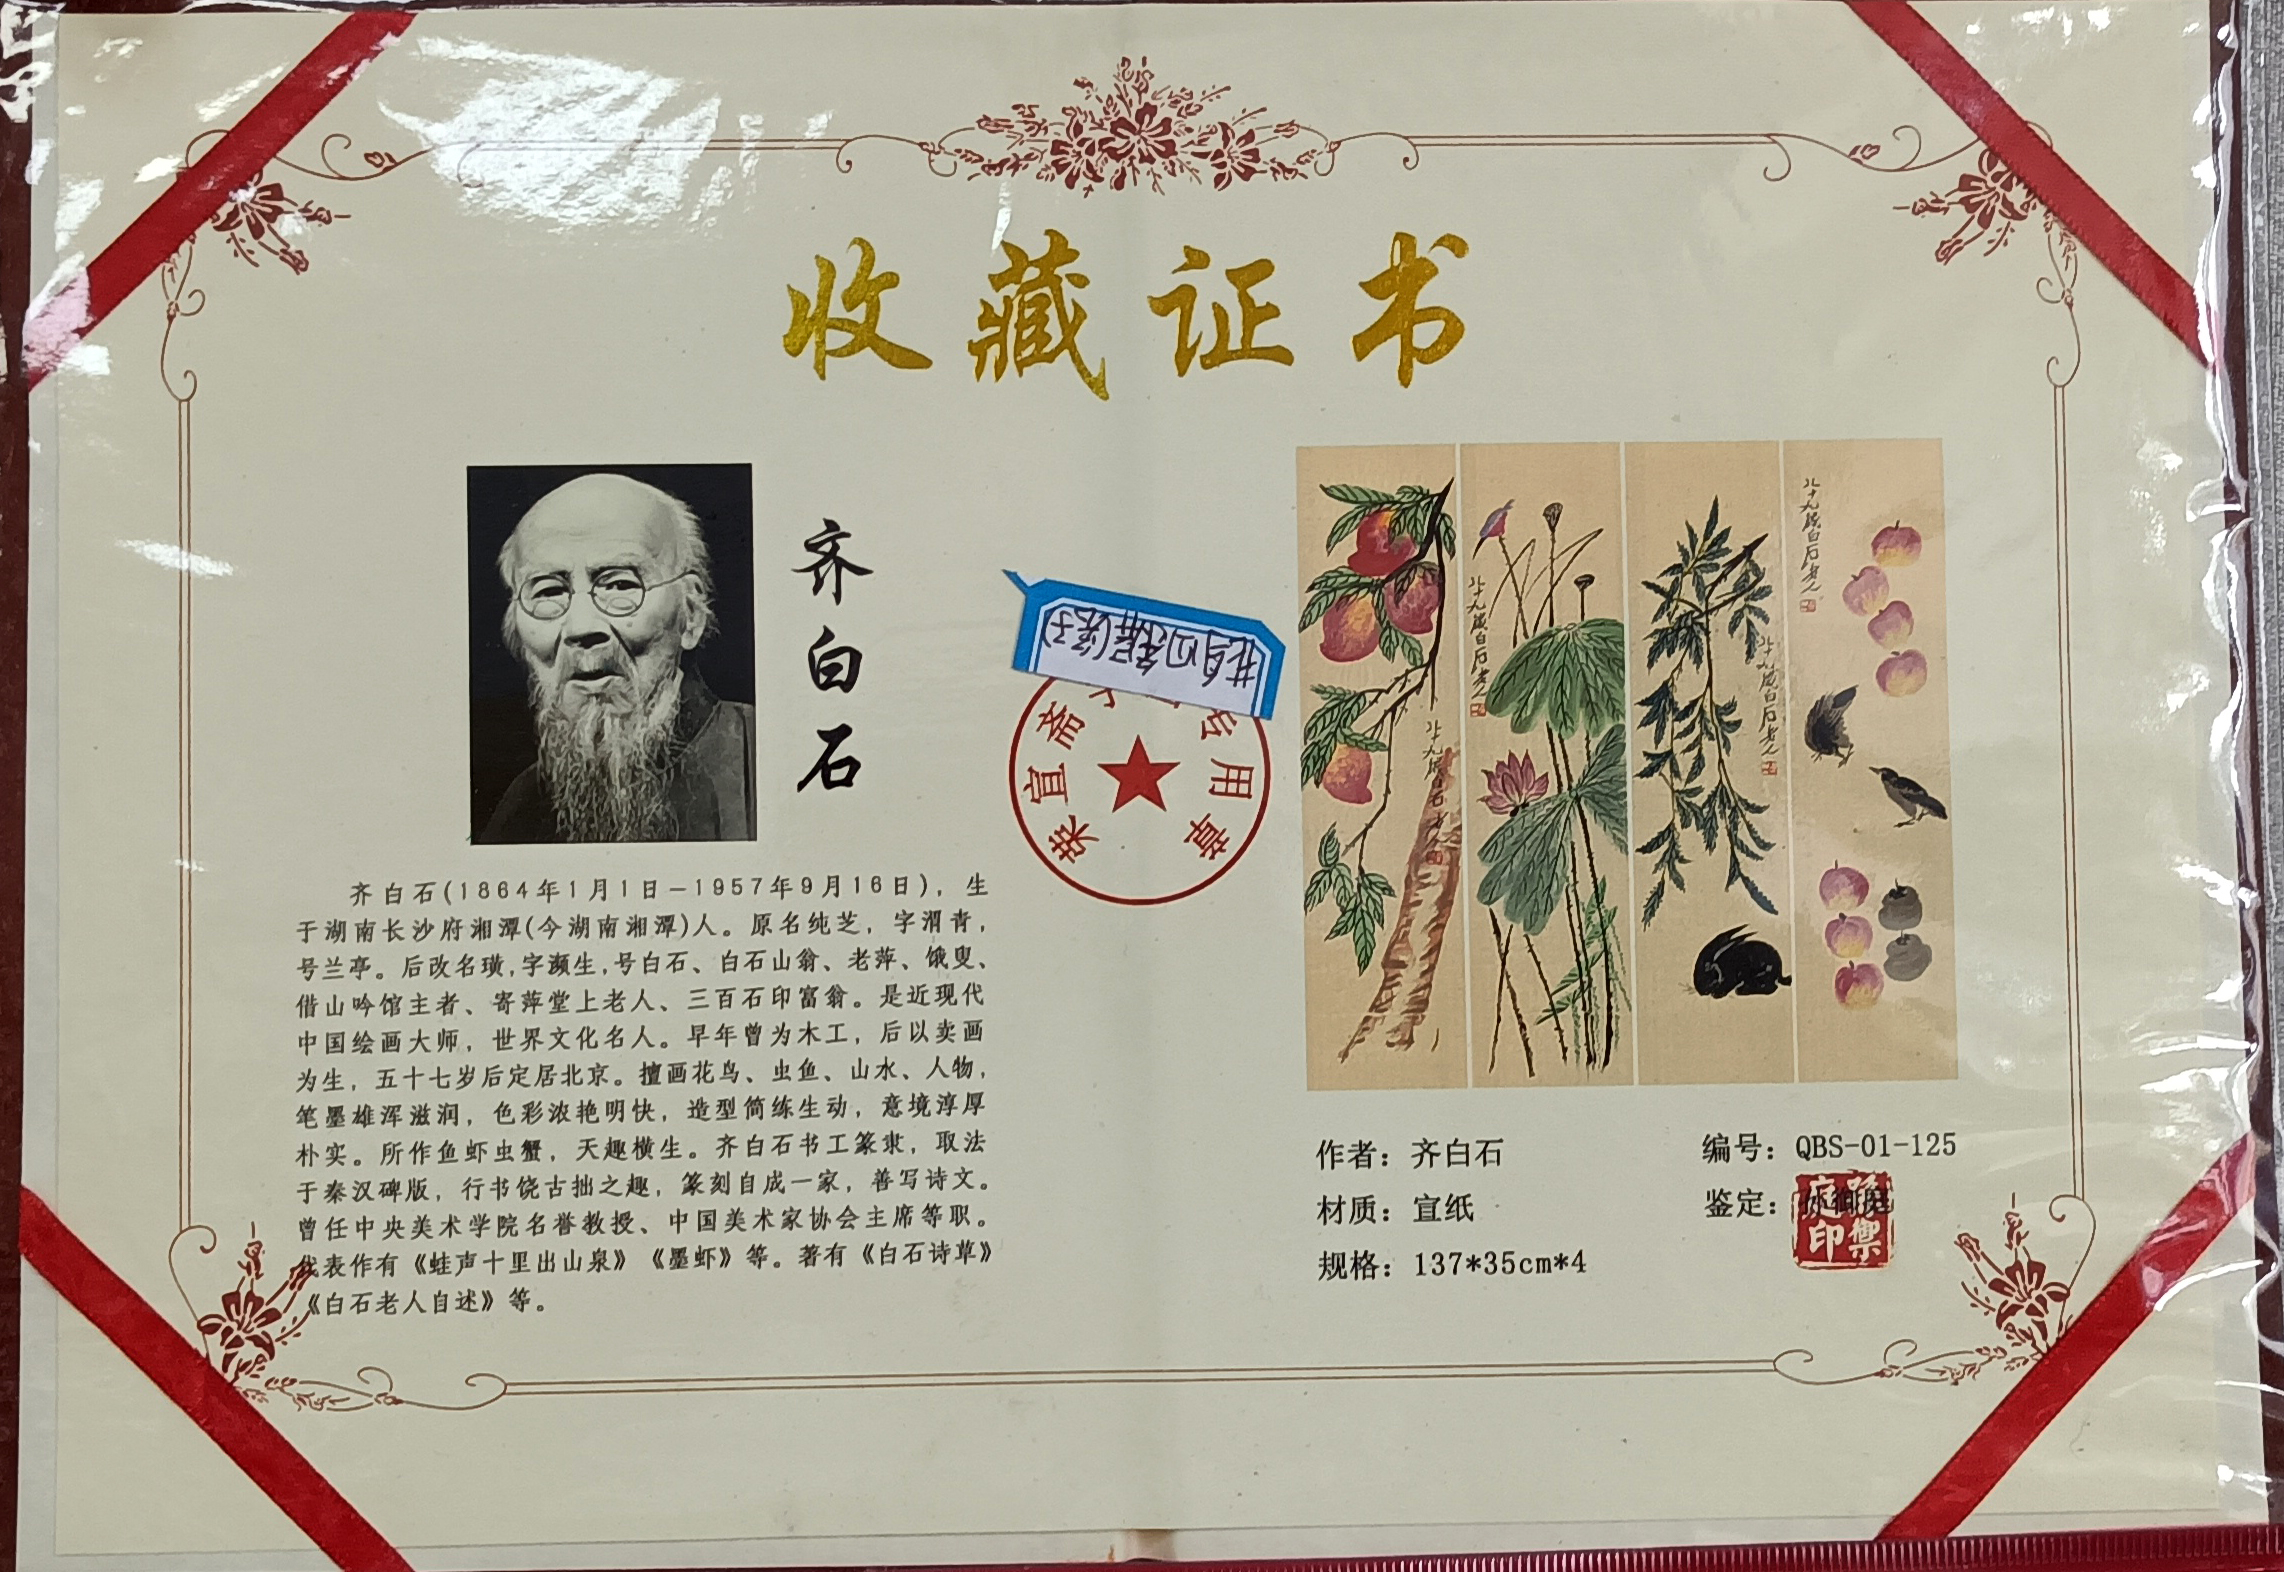 收藏证书
齐白石
齐白石(1864年1月1日-1957年9月16日)，生
于湖南长沙府湘潭(今湖南湘潭)人。原名纯芝，字渭青，
号兰亭。后改名璜,字濒生,号白石、白石山翁、老萍、饿叟、
借山吟馆主者、寄萍堂上老人、三百石印富翁。是近现代
中国绘画大师，世界文化名人。早年曾为木工，后以卖画
为生，五十七岁后定居北京。擅画花鸟、虫鱼、山水、人物，
笔墨雄浑滋润，色彩浓艳明快，造型简练生动，意境淳厚
朴实。所作鱼虾虫蟹，天趣横生。齐白石书工篆隶，取法
于秦汉碑版，行书饶古拙之趣，篆刻自成一家，善写诗文。
曾任中央美术学院名誉教授、中国美术家协会主席等职。
代表作有《蛙声十里出山泉》《墨虾》等。著有《白石诗草》
《白石老人自述》等。
荣宣斋 专用章
花鸟四条屏
八十九岁白石老人
八十九岁白石老人
八十九岁白石老人
八十九岁白石老人
作者：齐白石
材质：宣纸
规格：137*35cm*4
编号：QBS-01-125
鉴定：